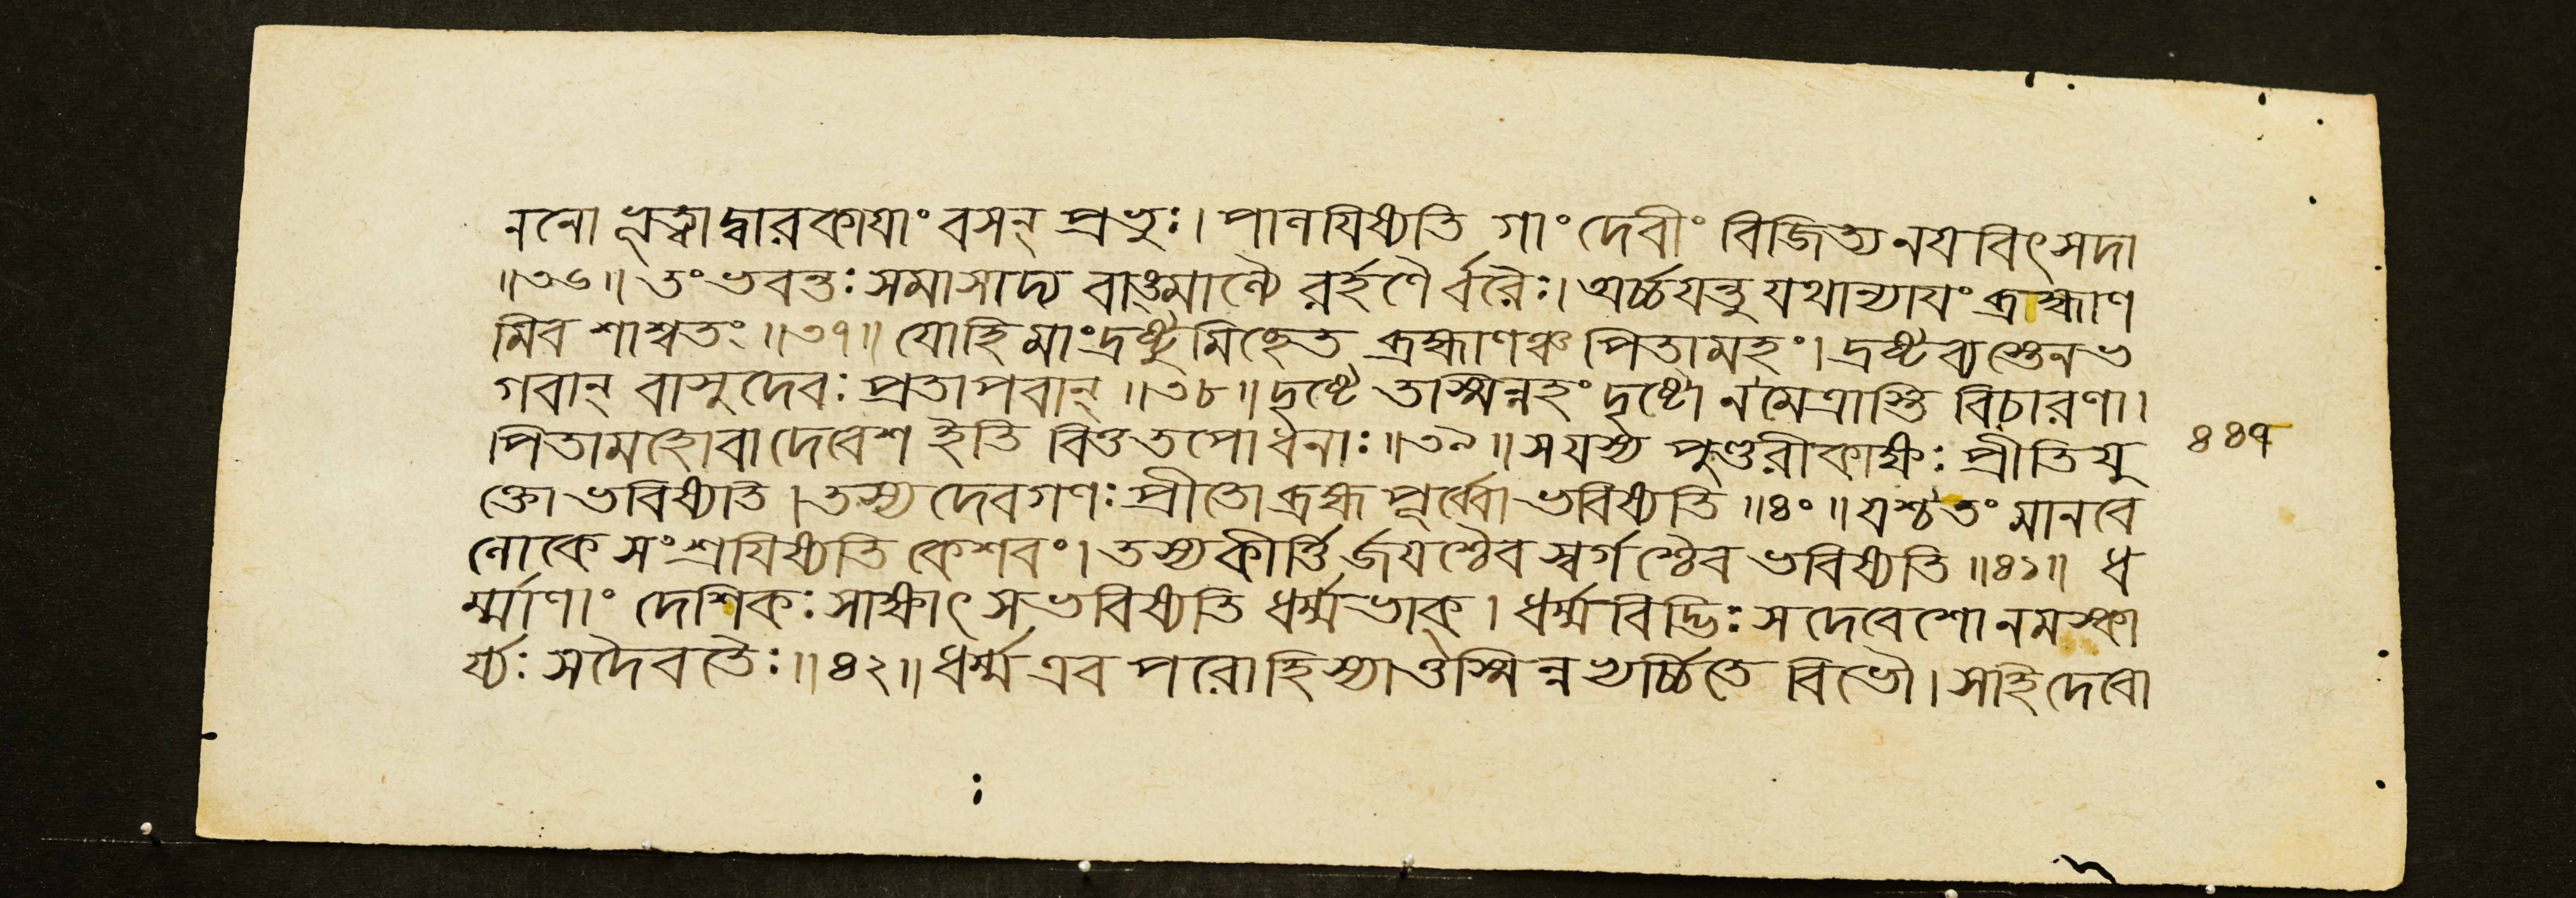 ননো ভূত্বা দ্বারকাযাং বসন্ প্রভুঃ। পালযিষ্যতি গাং দেবীং বিজিত্য নযবিৎ সদা
॥৩৬॥ তং ভবন্তঃ সমাসাদ্য বাঙ্মাল্যৈ রর্হণৈর্বরৈঃ। অর্চ্চযন্তু যথান্যাযং ব্রহ্মাণ
মিব শাশ্বতং ॥৩৭॥ যোহি মাং দ্রষ্টুমিচ্ছেত ব্রহ্মাণঞ্চ পিতামহং। দ্রষ্টব্যস্তেন ভ
গবান্ বাসুদেবঃ প্রতাপবান্ ॥৩৮॥ দৃষ্টে তস্মিন্নহং দৃষ্টো ন মেত্রাস্তি বিচারণা।
পিতামহোবা দেবেশ ইতি বিত্ত তপোধনাঃ ॥৩৯॥ স যস্য পুণ্ডরীকাক্ষঃ প্রীতিযু
ক্তো ভবিষ্যতি। তস্য দেবগণঃ প্রীতো ব্রহ্মপূর্ব্বো ভবিষ্যতি ॥৪০॥ যশ্চ তং মানবে
লোকে সংশ্রযিষ্যতি কেশবং। তস্য কীর্ত্তির্জযশ্চৈব স্বর্গশ্চৈব ভবিষ্যতি ॥৪১॥ ধ
র্ম্মাণাং দেশিকঃ সাক্ষাৎ স ভবিষ্যতি ধর্ম্মভাক্। ধর্ম্মবিদ্ভিঃ স দেবেশো নমস্কা
র্য্যঃ সদৈবতৈঃ ॥৪২॥ ধর্ম্ম এব পরোহি স্যাত্তস্মিন্নভ্যর্চ্চিতে বিভৌ। স হি দেবো
৪৪৭